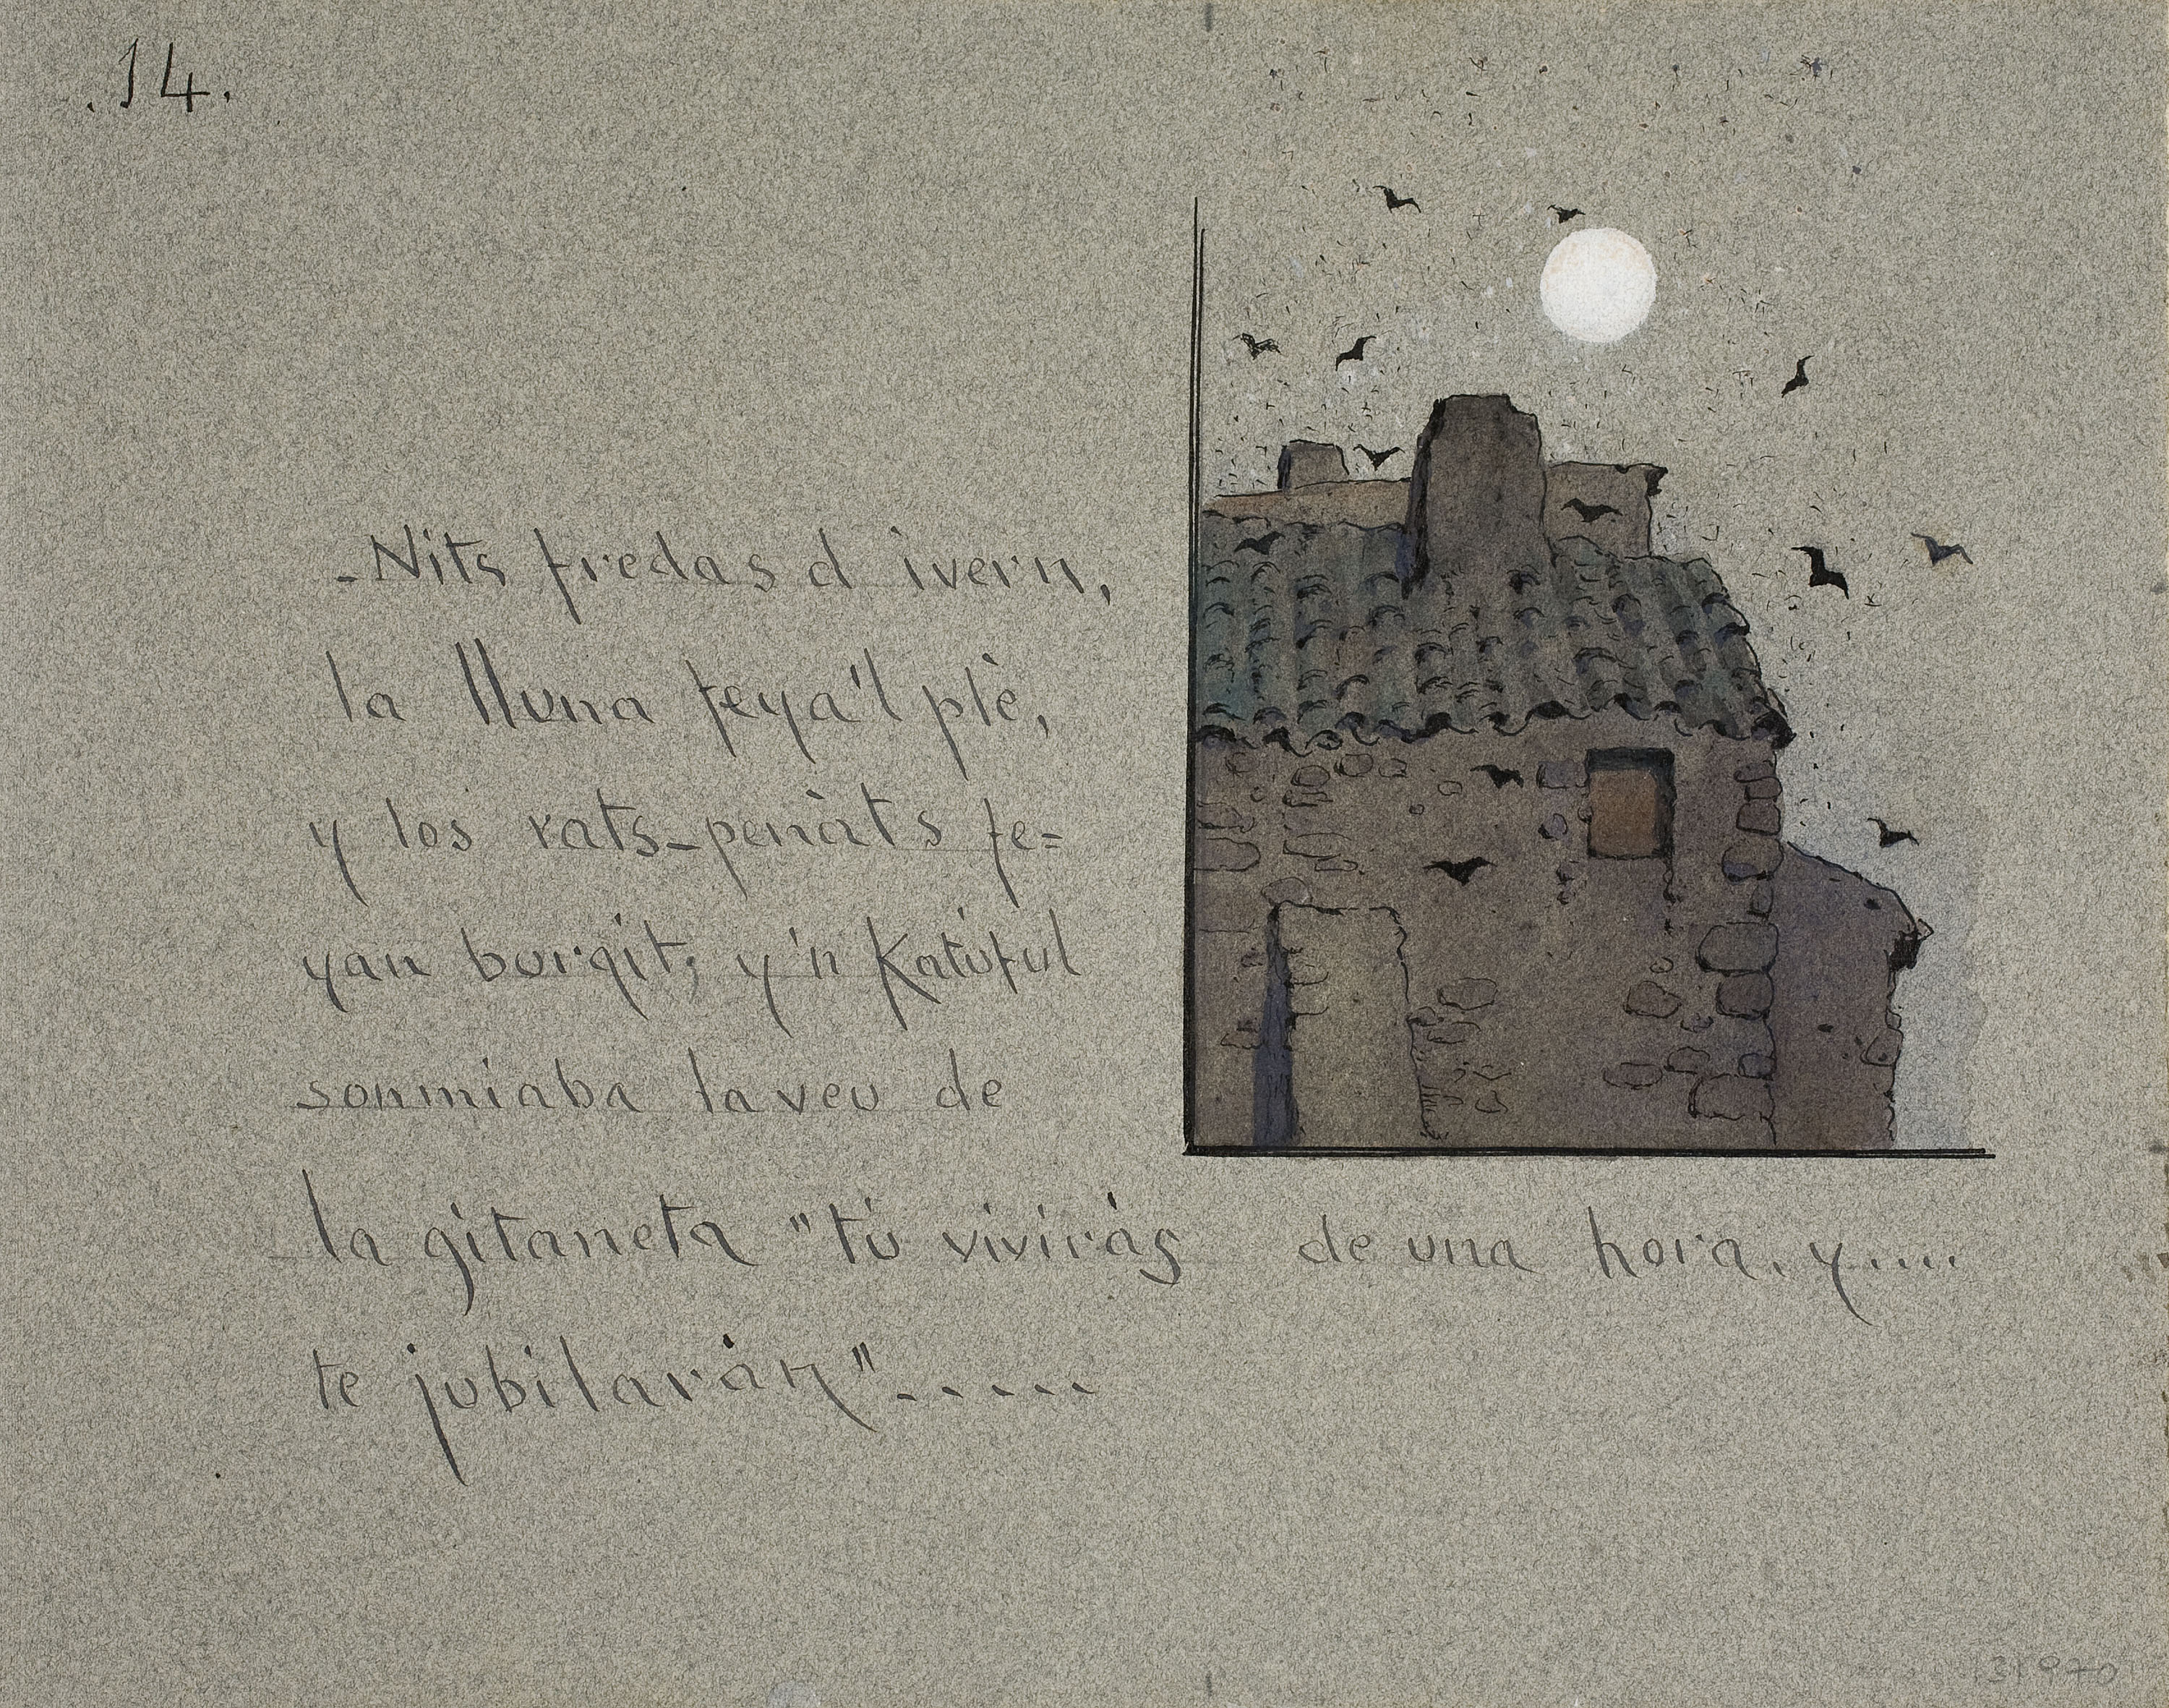 .14.
-Nits fredas d ivern,
la lluna feya'l plè,
y los rats-penàts fe=
yan burgit; y'n Katúful
sonmiaba la veu de
la gitaneta "tú viviràs de una hora, y....
te jubilaràn".-----
31970